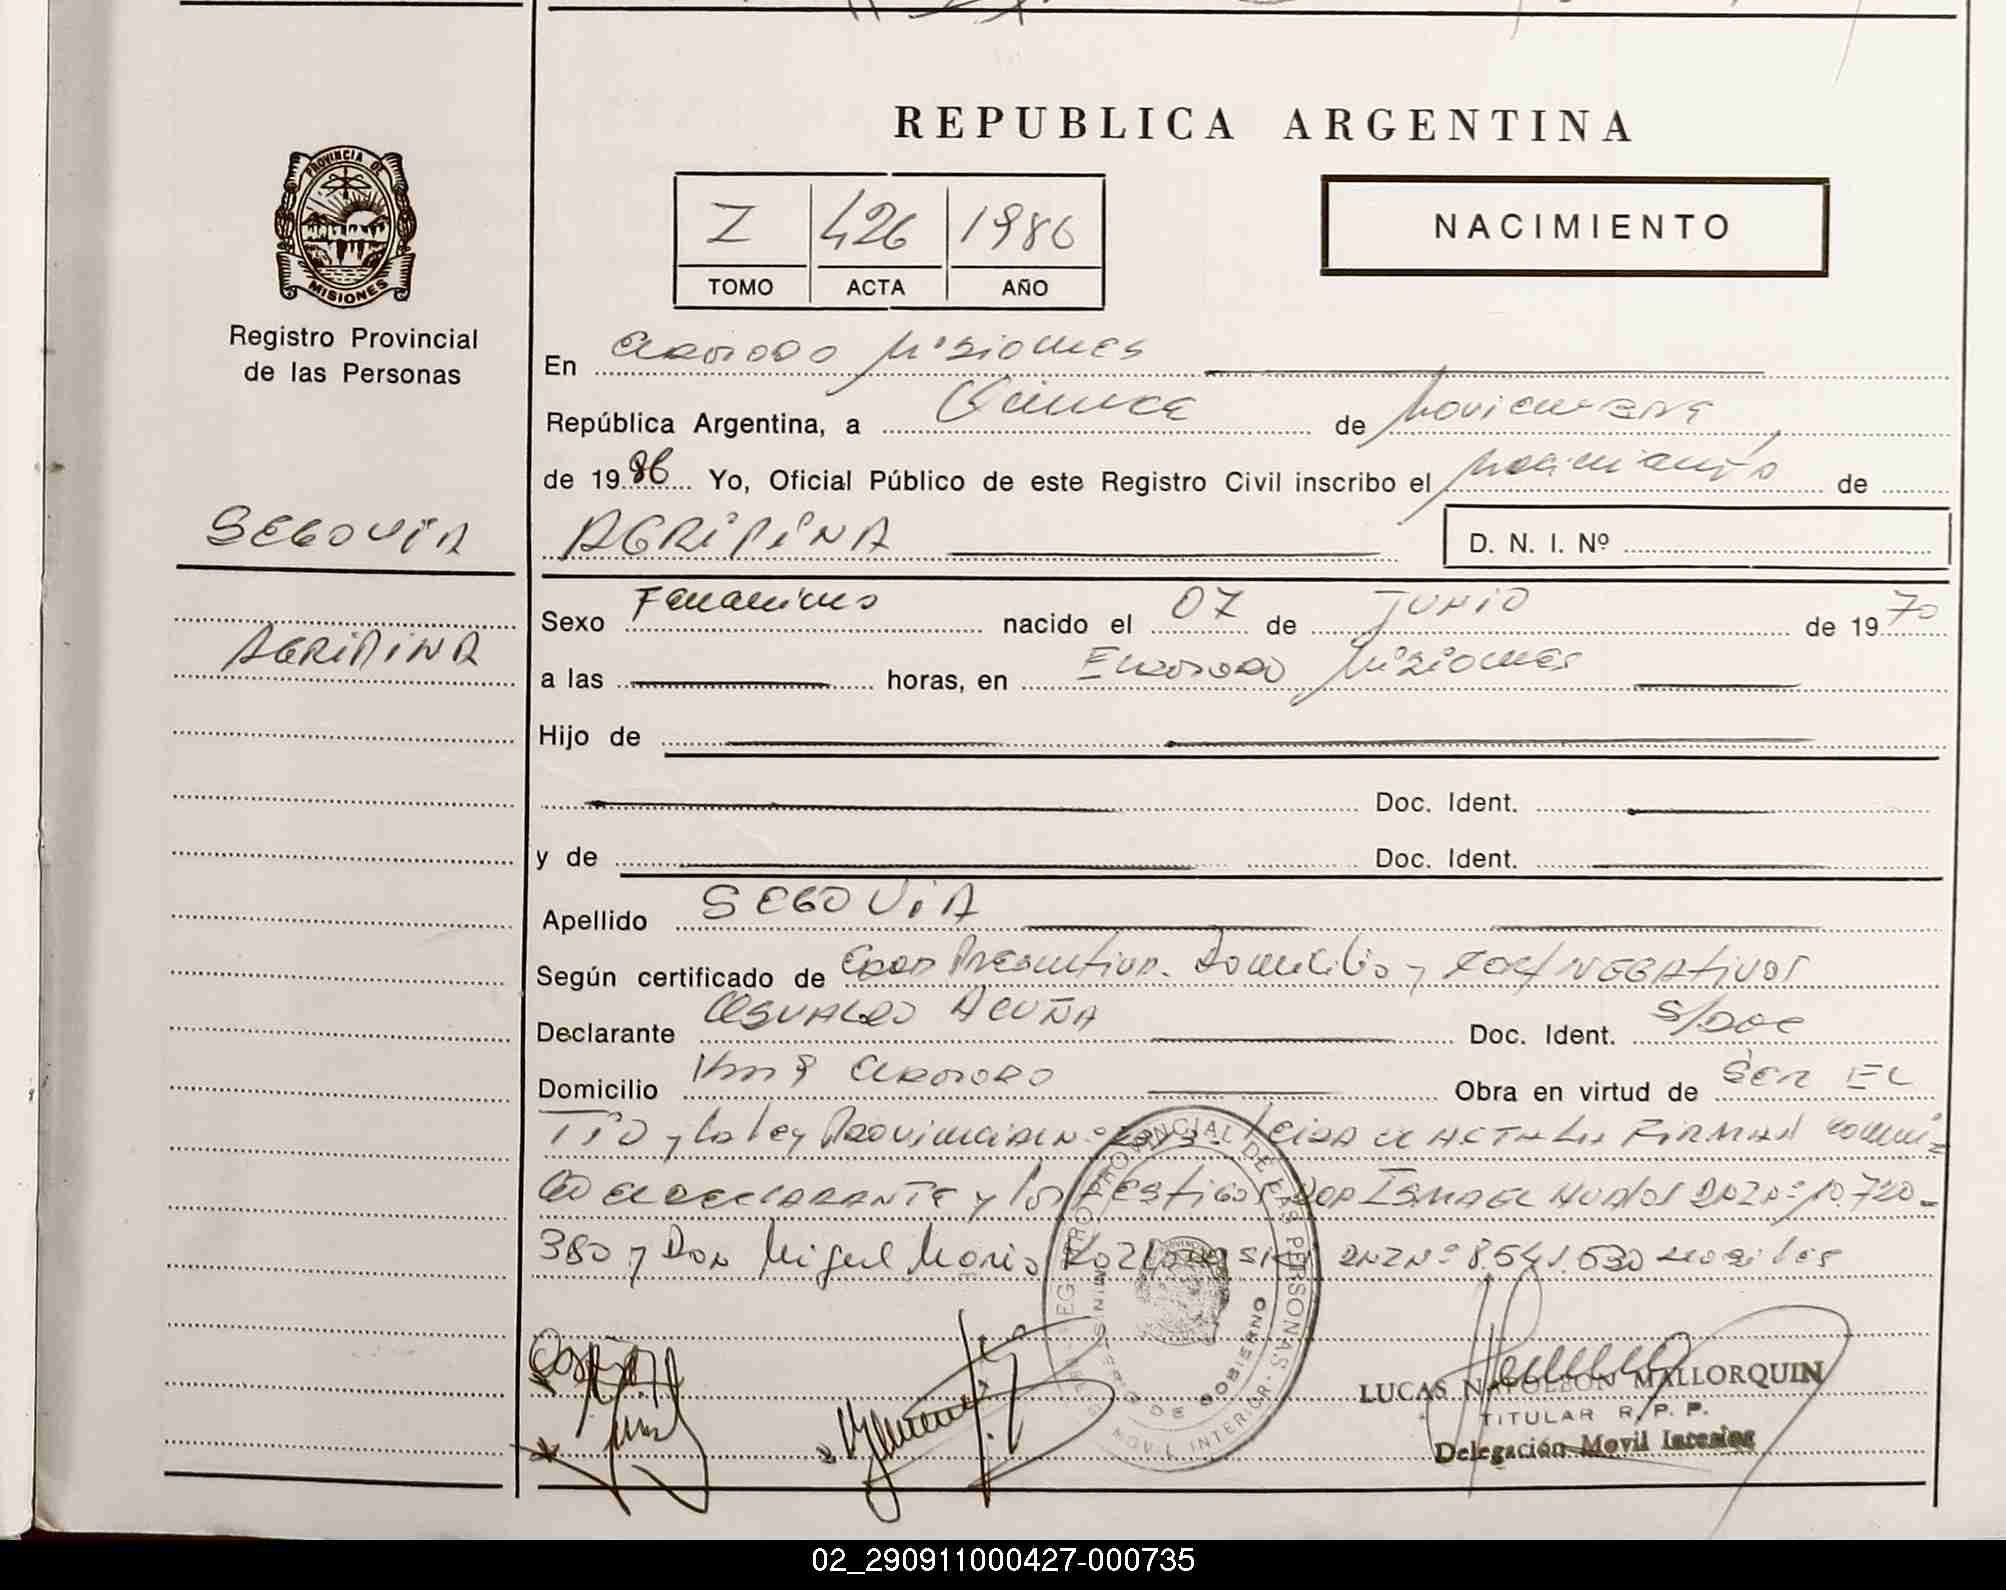 REPUBLICA ARGENTINA
PROVINCIA DE
MISIONES
Registro Provincial
de las Personas
I 426 1986
TOMO ACTA AÑO
NACIMIENTO
En Eldorado Misiones
República Argentina, a Quince de Noviembre
de 1986 Yo, Oficial Público de este Registro Civil inscribo el Nacimiento de
SEGOVIA
AGRIPINA
D. N. I. Nº
AGRIPINA
Sexo Femenino nacido el 07 de JUNIO de 1970
a las horas, en Eldorado Misiones
Hijo de
Doc. Ident.
y de Doc. Ident.
Apellido SEGOVIA
Según certificado de Edad Presuntiva. Domicilio y NEGATIVOS
Declarante OSVALDO ACUÑA Doc. Ident. S/DOC
Domicilio Km 9 Eldorado Obra en virtud de SER EL
TIO y la ley Provincial Nº Leida el ACTA la FIRMAN conmi-
go el DECLARANTE y los testigos Don ISMAEL DNI Nº 10.720-
380 y Don Miguel Mario DNI Nº 8.541.630
REGISTRO PROVINCIAL DE LAS PERSONAS
MINISTERIO DE GOBIERNO
MOVIL INTERIOR
LUCAS NAPOLEON MALLORQUIN
TITULAR R. P. P.
Delegación Movil Interior
02_290911000427-000735